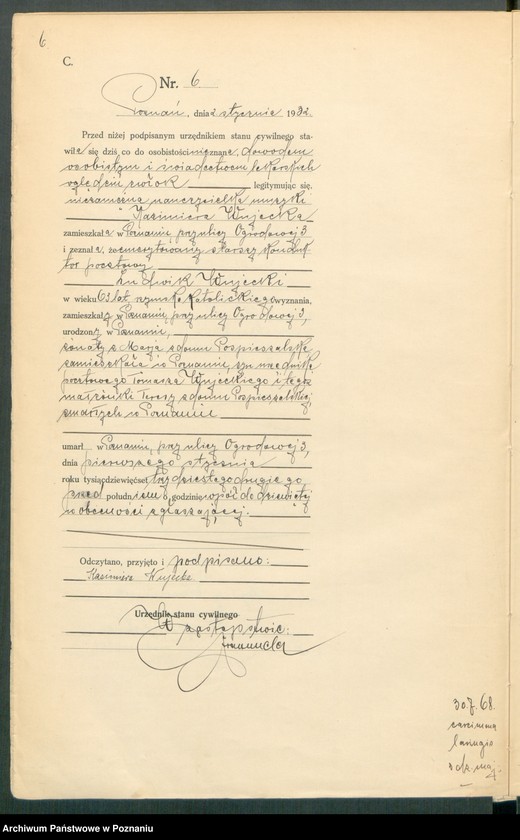 6
C.
Nr. 6
Poznań, dnia 2 stycznia 1932.
Przed niżej podpisanym urzędnikiem stanu cywilnego sta-
wiła się dziś co do osobistości nieznana, dowodem
osobistym i świadectwem lekarskich
oględzin zwłok legitymując się,
niezamężna nauczycielka muzyki
Kazimiera Wujecka
zamieszkała w Poznaniu przy ulicy Ogrodowej 3
i zeznała, że emerytowany starszy konduk-
tor pocztowy
Ludwik Wujecki
w wieku 63 lat rzymsko katolickiego wyznania,
zamieszkały w Poznaniu, przy ulicy Ogrodowej 3,
urodzony w Poznaniu,
żonaty z Marją z domu Pospieszalską
zamieszkałą w Poznaniu, syn urzędnika
pocztowego Tomasza Wujeckiego i tegoż
małżonki Teresy z domu Pospieszalskiej
zmarłych w Poznaniu
umarł w Poznaniu, przy ulicy Ogrodowej 3,
dnia pierwszego stycznia
roku tysiącdziewięćset trzydziestego drugiego
przed południem o godzinie wpół do dziewiątej
w obecności zgłaszającej.
Odczytano, przyjęto i podpisano:
Kazimiera Wujecka
Urzędnik stanu cywilnego
W zastępstwie:
30.7.68.
carcinoma
Archiwum Państwowe w Poznaniu